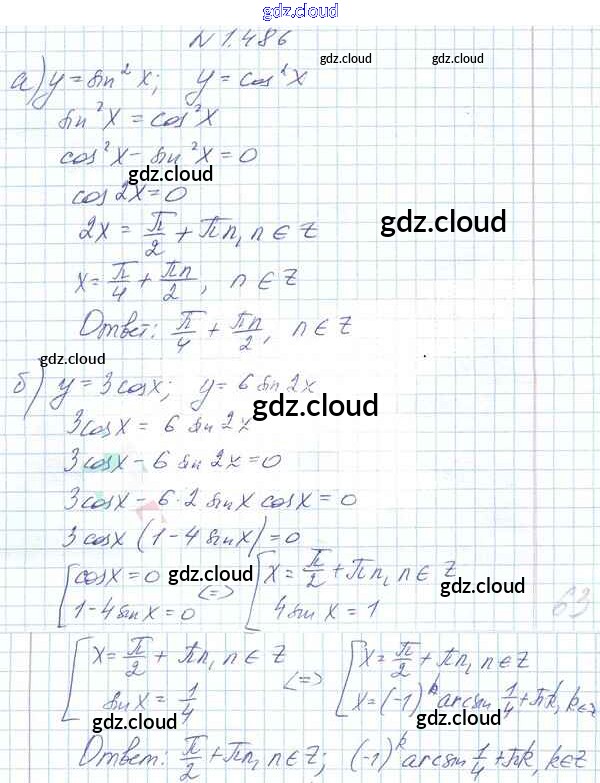 gdz.cloud
N 1.486
gdz.cloud
а) y = sin² x; y = cos² x
sin² x = cos² x
cos² x − sin² x = 0
gdz.cloud
cos 2x = 0
gdz.cloud
2x = π/2 + πn, n ∈ Z
x = π/4 + πn/2, n ∈ Z
Ответ: π/4 + πn/2, n ∈ Z
gdz.cloud
б) y = 3cosx; y = 6 sin 2x
gdz.cloud
3cosx = 6 sin 2x
3cosx − 6 sin 2x = 0
3cosx − 6·2 sinx cosx = 0
3cosx (1 − 4sinx) = 0
[cosx = 0 gdz.cloud [x = π/2 + πn, n ∈ Z gdz.cloud
[1 − 4sinx = 0 <=> [4sinx = 1
63
[x = π/2 + πn, n ∈ Z <=> [x = π/2 + πn, n ∈ Z
[sinx = 1/4 [x = (−1)ᵏ arcsin 1/4 + πk, k ∈ Z
gdz.cloud gdz.cloud
Ответ: π/2 + πn, n ∈ Z; (−1)ᵏ arcsin 1/4 + πk, k ∈ Z